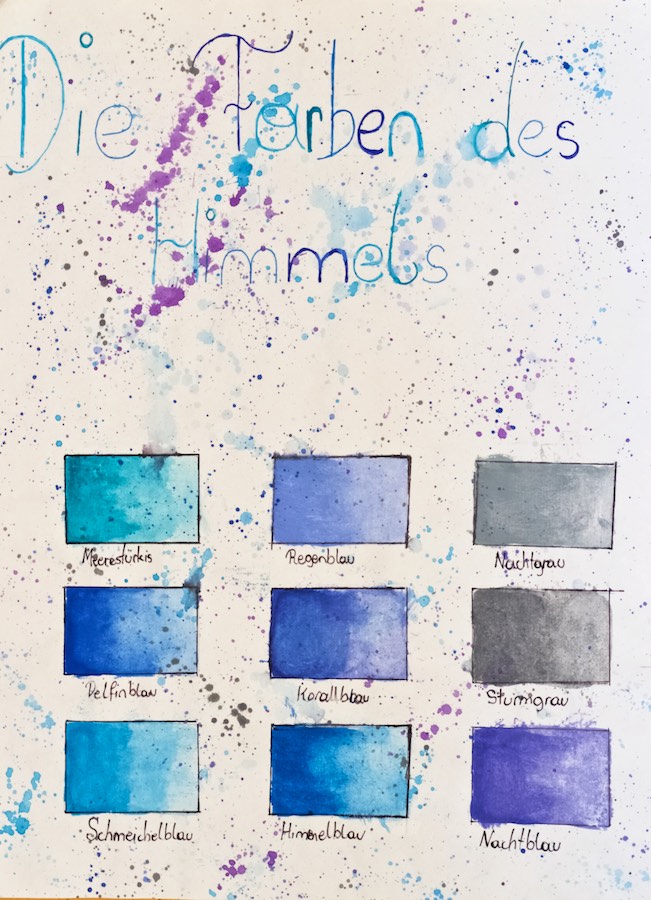 Die Farben des
Himmels
Meerestürkis
Regenblau
Nachtgrau
Delfinblau
Korallblau
Sturmgrau
Schmeichelblau
Himmelblau
Nachtblau